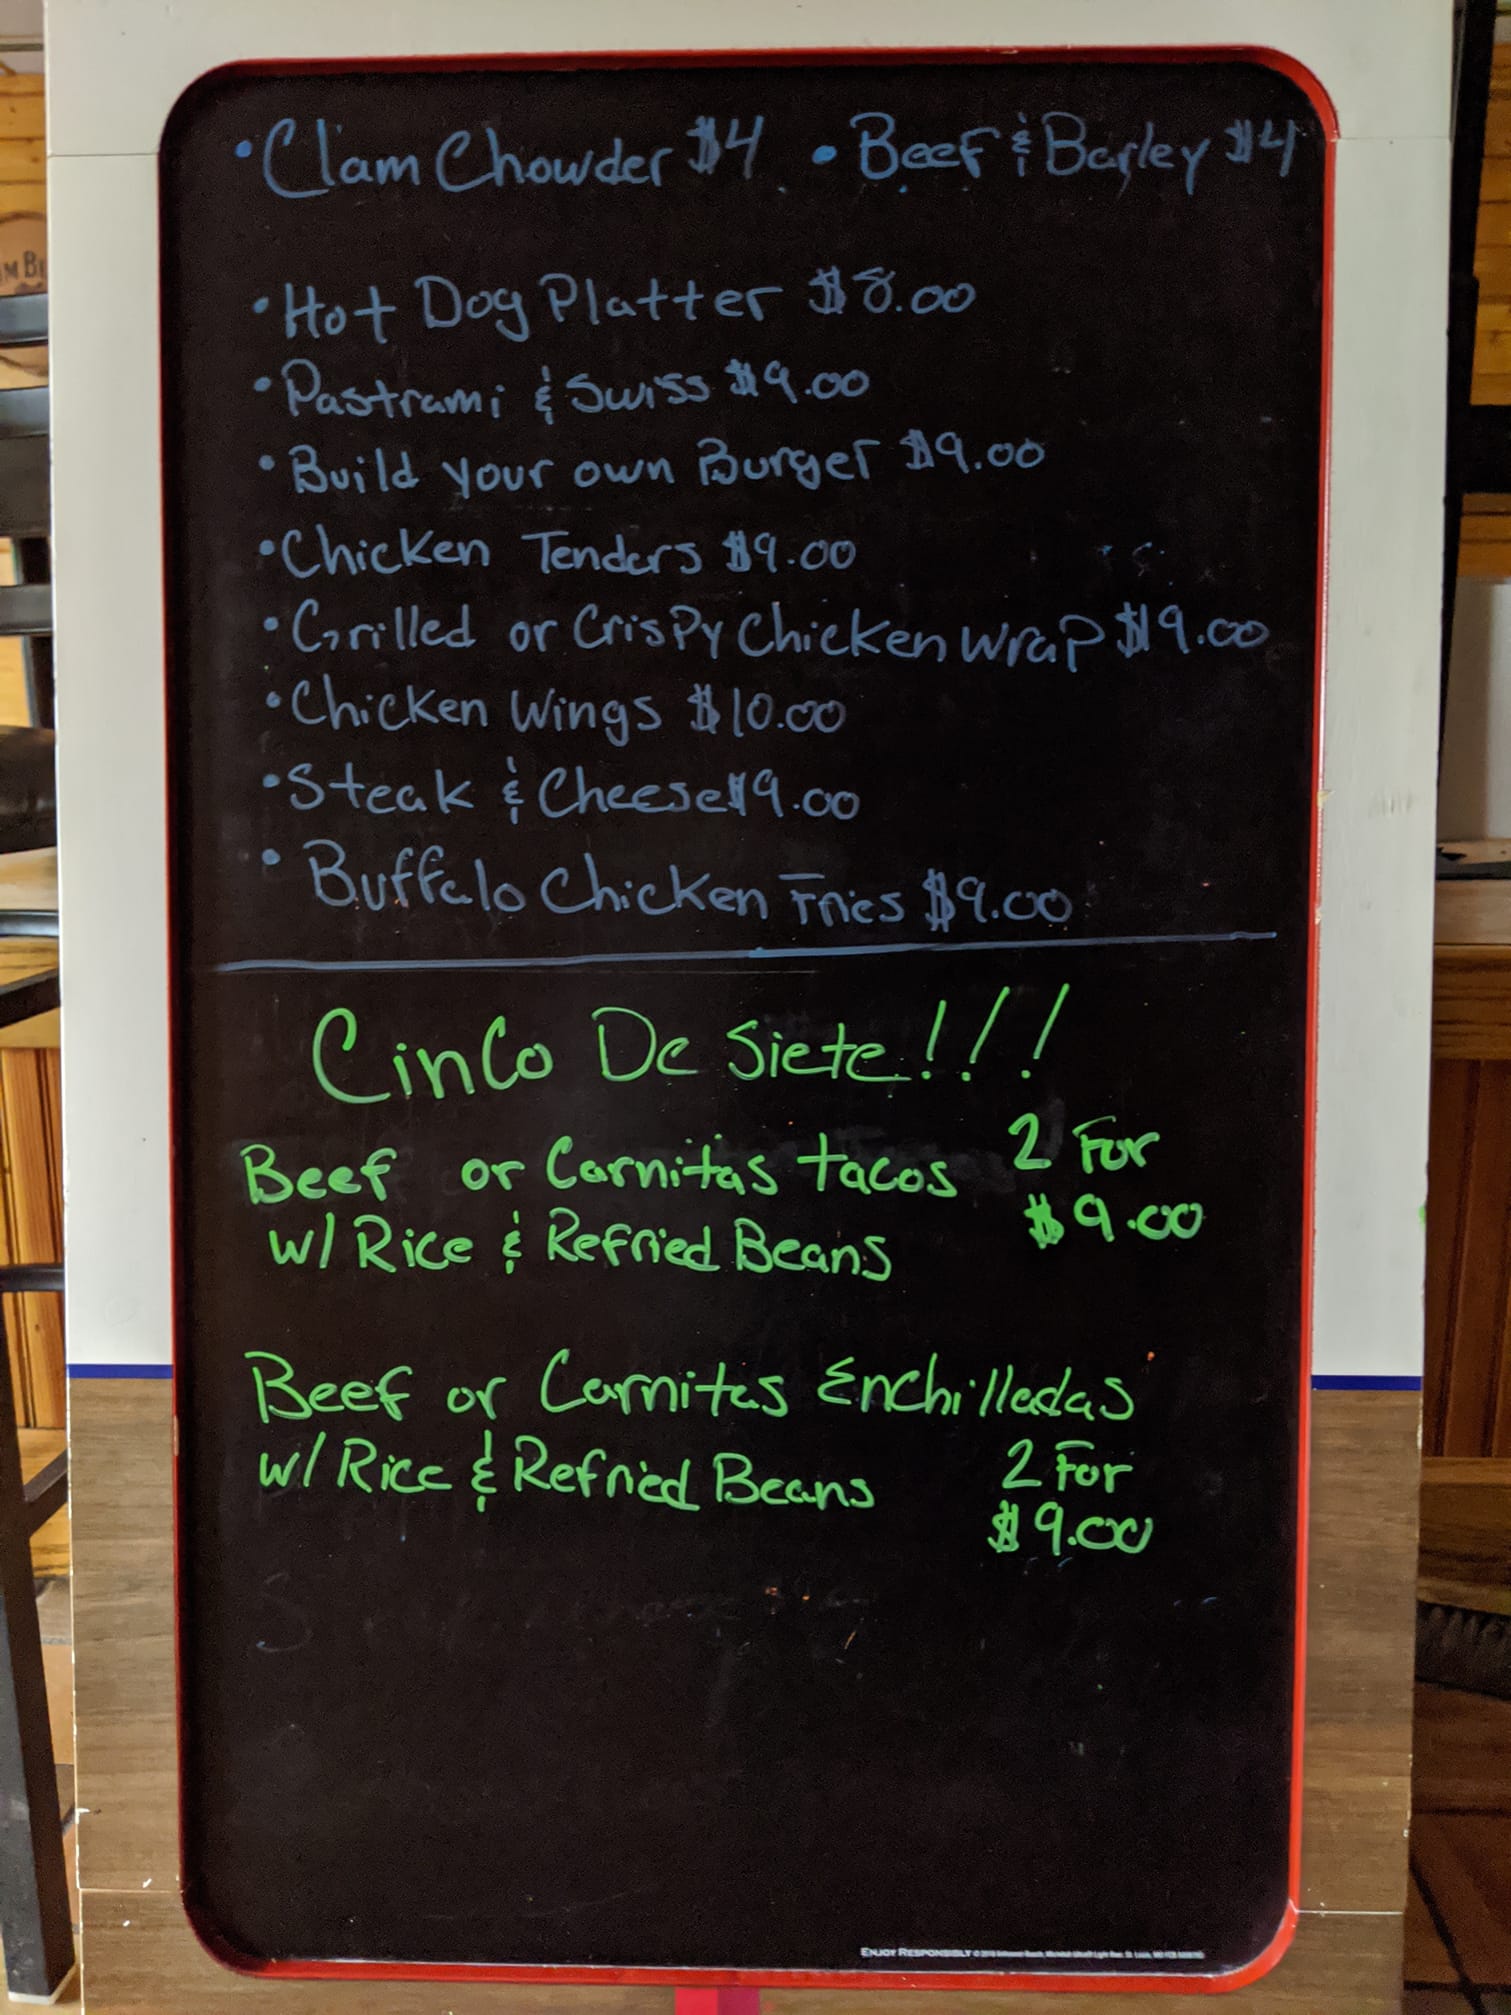 • Clam Chowder $4 • Beef & Barley $4
• Hot Dog Platter $8.00
• Pastrami & Swiss $9.00
• Build your own Burger $9.00
• Chicken Tenders $9.00
• Grilled or Crispy Chicken Wrap $9.00
• Chicken Wings $10.00
• Steak & Cheese $9.00
• Buffalo Chicken Fries $9.00
Cinco De Siete!!!
Beef or Carnitas tacos 2 For
w/ Rice & Refried Beans $9.00
Beef or Carnitas Enchilladas
w/ Rice & Refried Beans 2 For
$9.00
ENJOY RESPONSIBLY